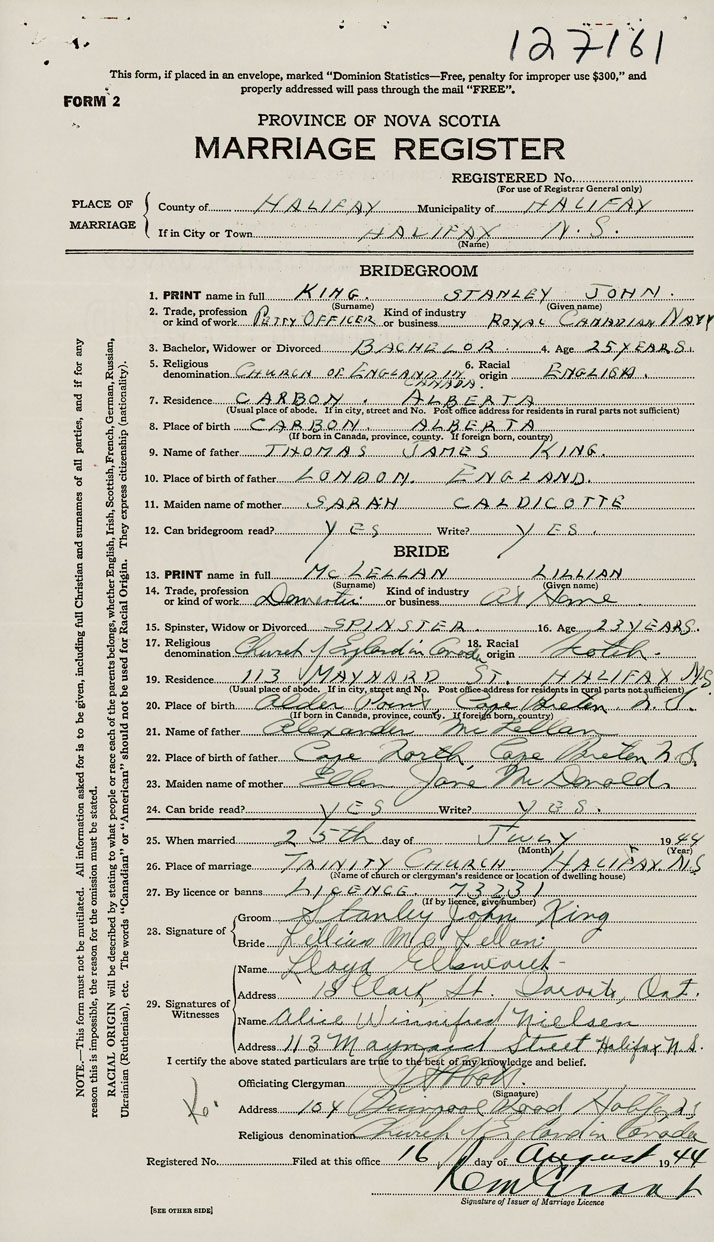 127161
This form, if placed in an envelope, marked "Dominion Statistics—Free, penalty for improper use $300," and
properly addressed will pass through the mail "FREE".
FORM 2
PROVINCE OF NOVA SCOTIA
MARRIAGE REGISTER
REGISTERED No.
(For use of Registrar General only)
PLACE OF MARRIAGE
County of HALIFAX Municipality of HALIFAX
If in City or Town HALIFAX N.S.
(Name)
BRIDEGROOM
1. PRINT name in full KING. STANLEY JOHN.
(Surname) (Given name)
2. Trade, profession or kind of work PETTY OFFICER Kind of industry or business ROYAL CANADIAN NAVY
3. Bachelor, Widower or Divorced BACHELOR. 4. Age 25 YEARS.
5. Religious denomination CHURCH OF ENGLAND IN CANADA. 6. Racial origin ENGLISH.
7. Residence CARBON. ALBERTA
(Usual place of abode. If in city, street and No. Post office address for residents in rural parts not sufficient)
8. Place of birth CARBON. ALBERTA
(If born in Canada, province, county. If foreign born, country)
9. Name of father THOMAS JAMES KING.
10. Place of birth of father LONDON. ENGLAND.
11. Maiden name of mother SARAH CALDICOTTE
12. Can bridegroom read? YES Write? YES.
BRIDE
13. PRINT name in full McLELLAN LILLIAN
(Surname) (Given name)
14. Trade, profession or kind of work Domestic Kind of industry or business At Home.
15. Spinster, Widow or Divorced SPINSTER. 16. Age 23 YEARS.
17. Religious denomination Church of England in Canada 18. Racial origin Scotch.
19. Residence 113 MAYNARD ST. HALIFAX N.S.
(Usual place of abode. If in city, street and No. Post office address for residents in rural parts not sufficient)
20. Place of birth Alder Point, Cape Breton N.S.
(If born in Canada, province, county. If foreign born, country)
21. Name of father Alexander McLellan
22. Place of birth of father Cape North, Cape Breton N.S.
23. Maiden name of mother Ellen Jane McDonald.
24. Can bride read? YES Write? YES.
25. When married 25th day of JULY 1944
(Month) (Year)
26. Place of marriage TRINITY CHURCH HALIFAX N.S
(Name of church or clergyman's residence or location of dwelling house)
27. By licence or banns LICENCE. 73231
(If by licence, give number)
28. Signature of
Groom Stanley John King
Bride Lillian McLellan
29. Signatures of Witnesses
Name Lloyd Ellsworth
Address 18 Clark St. Toronto, Ont.
Name Alice Winnifred Nielsen
Address 113 Maynard Street Halifax N.S.
I certify the above stated particulars are true to the best of my knowledge and belief.
Officiating Clergyman
(Signature)
Address 104 Road Halifax N.S.
Religious denomination Church of England in Canada
Registered No. Filed at this office 16 day of August 1944
Signature of Issuer of Marriage Licence
[SEE OTHER SIDE]
NOTE.—This form must not be mutilated. All information asked for is to be given, including full Christian and surnames of all parties, and if for any
reason this is impossible, the reason for the omission must be stated.
RACIAL ORIGIN will be described by stating to what people or race each of the parents belongs, whether English, Irish, Scottish, French, German, Russian,
Ukrainian (Ruthenian), etc. The words "Canadian" or "American" should not be used for Racial Origin. They express citizenship (nationality).